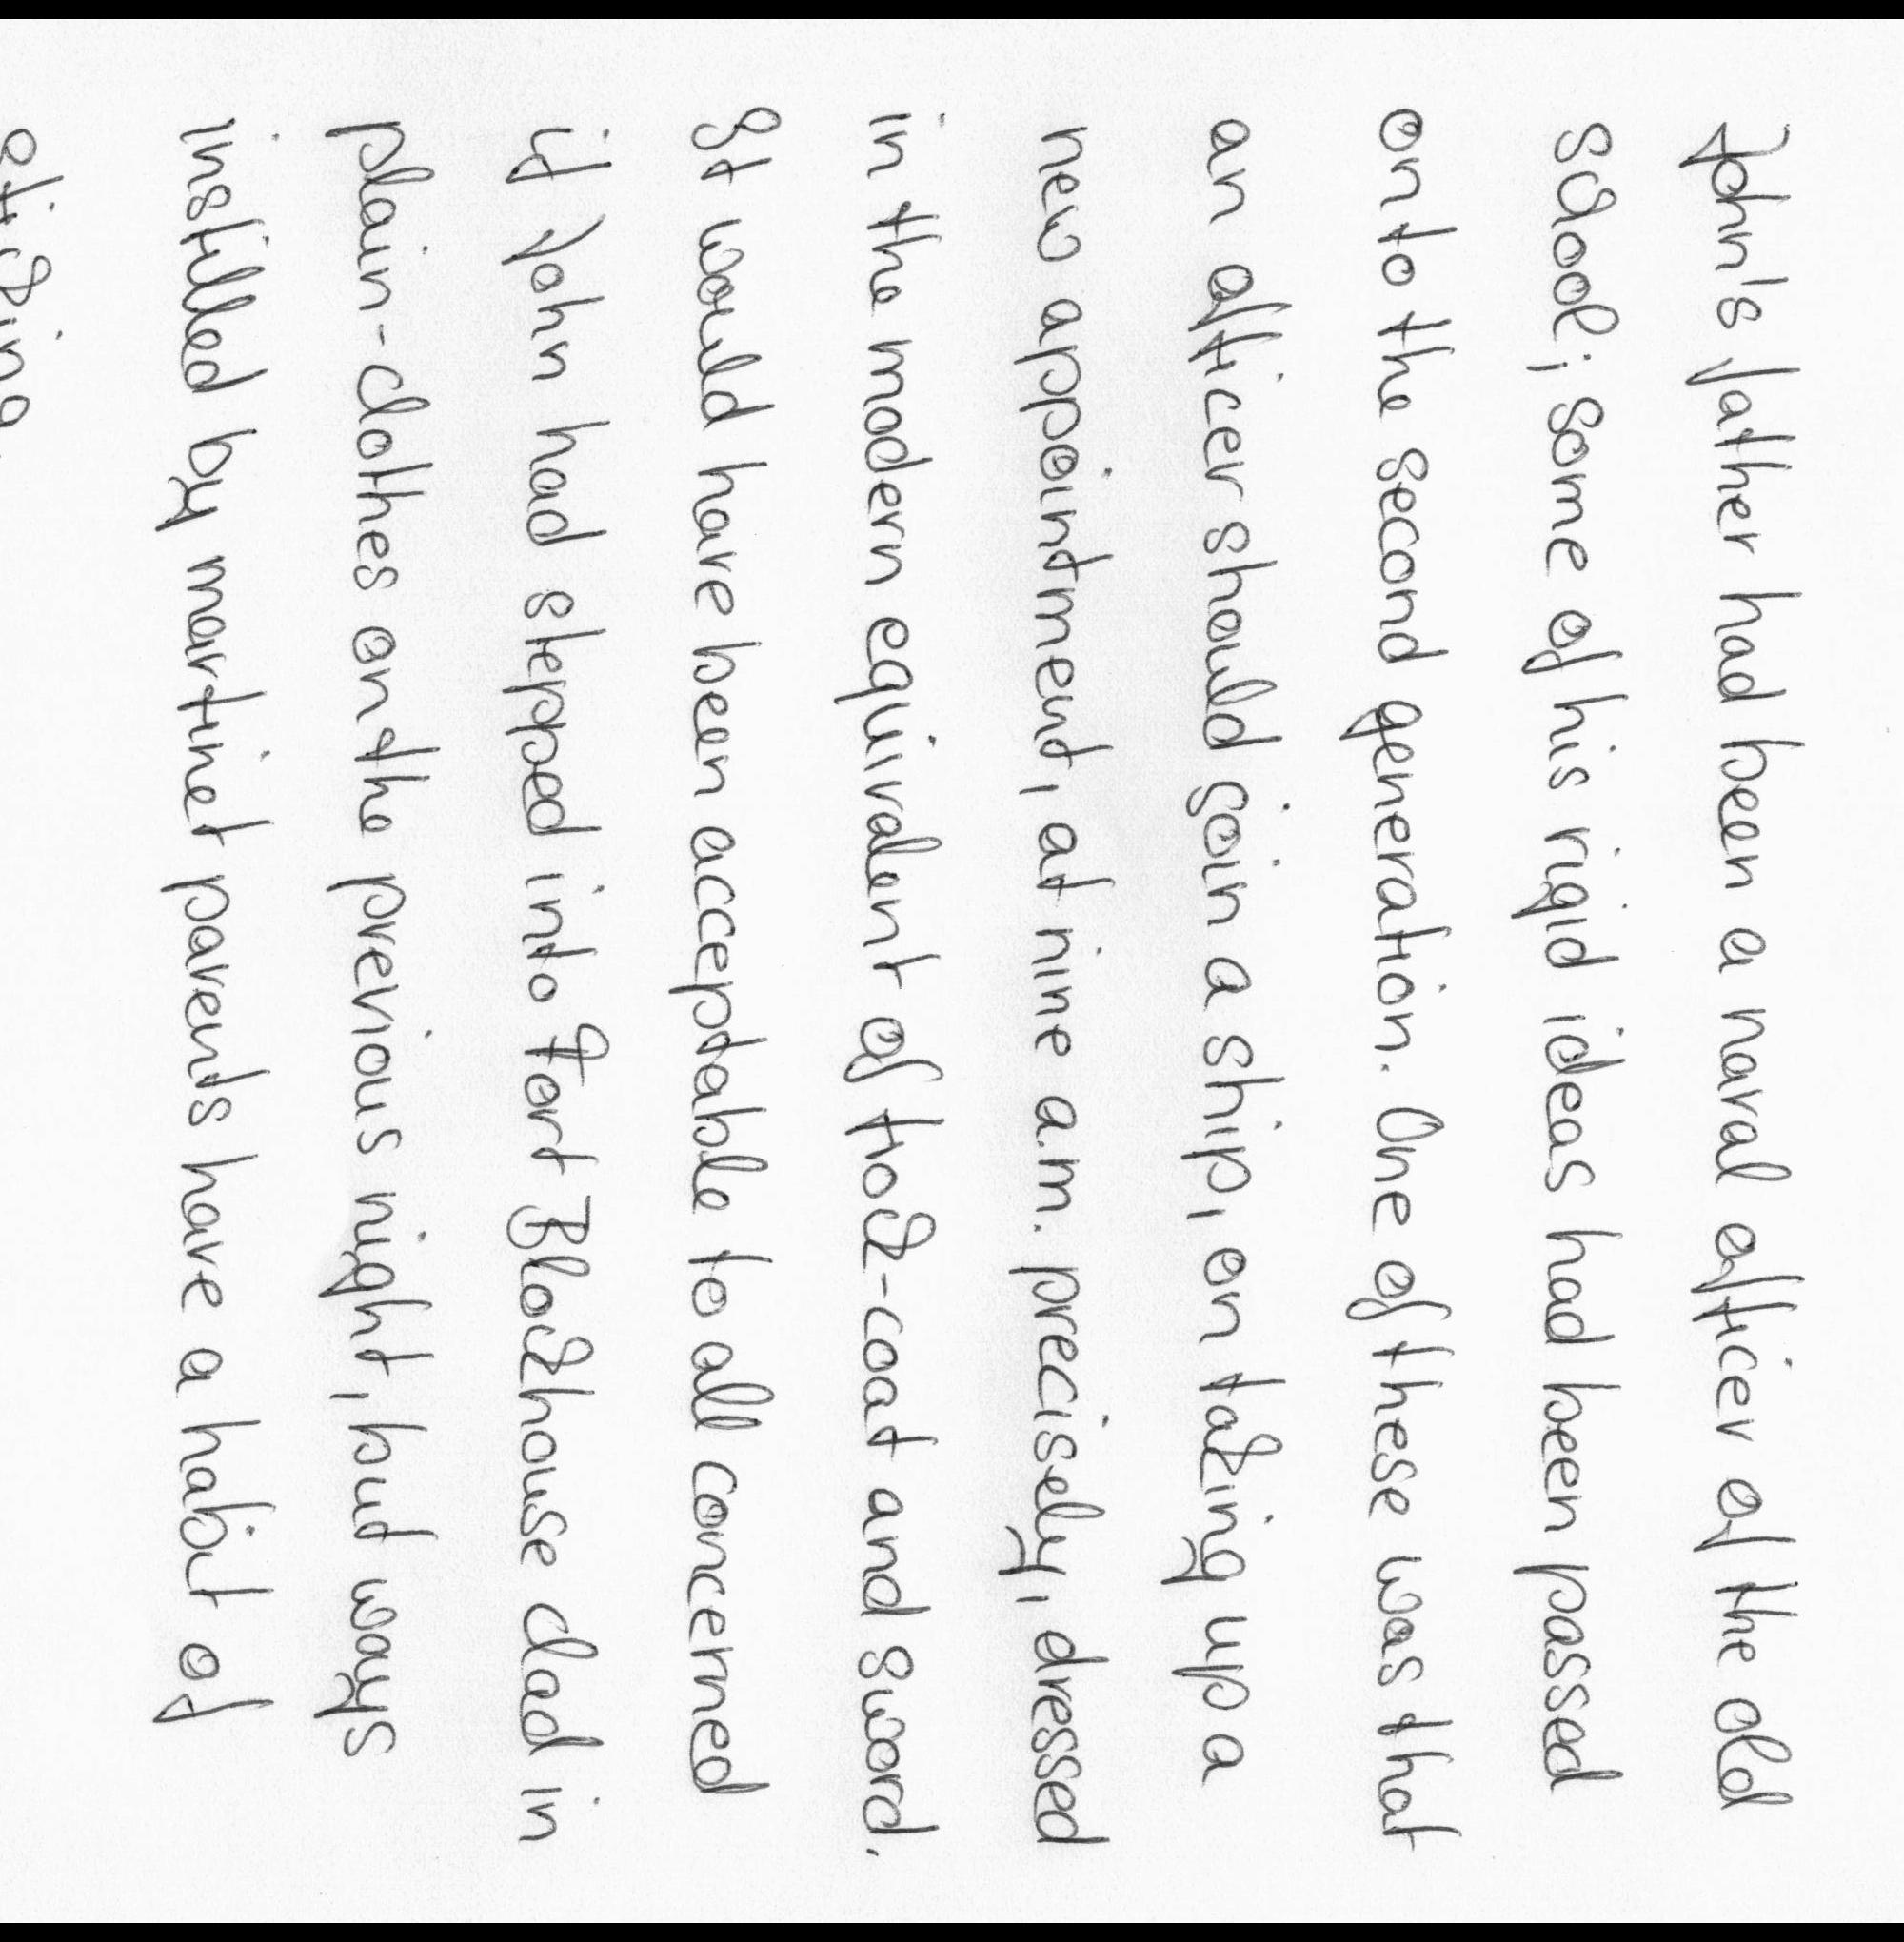 John's father had been a naval officer of the old
school; some of his rigid ideas had been passed
on to the second generation. One of these was that
an officer should join a ship, on taking up a
new appointment, at nine a.m. precisely, dressed
in the modern equivalent of frock-coat and sword.
It would have been acceptable to all concerned
if John had stepped into Fort Blockhouse clad in
plain-clothes on the previous night, but ways
instilled by martinet parents have a habit of
sticking.